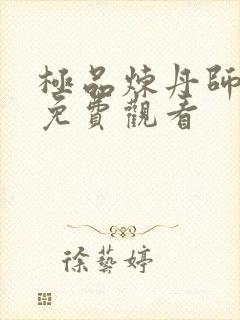 極品煉丹師
免費觀看
徐藝婷